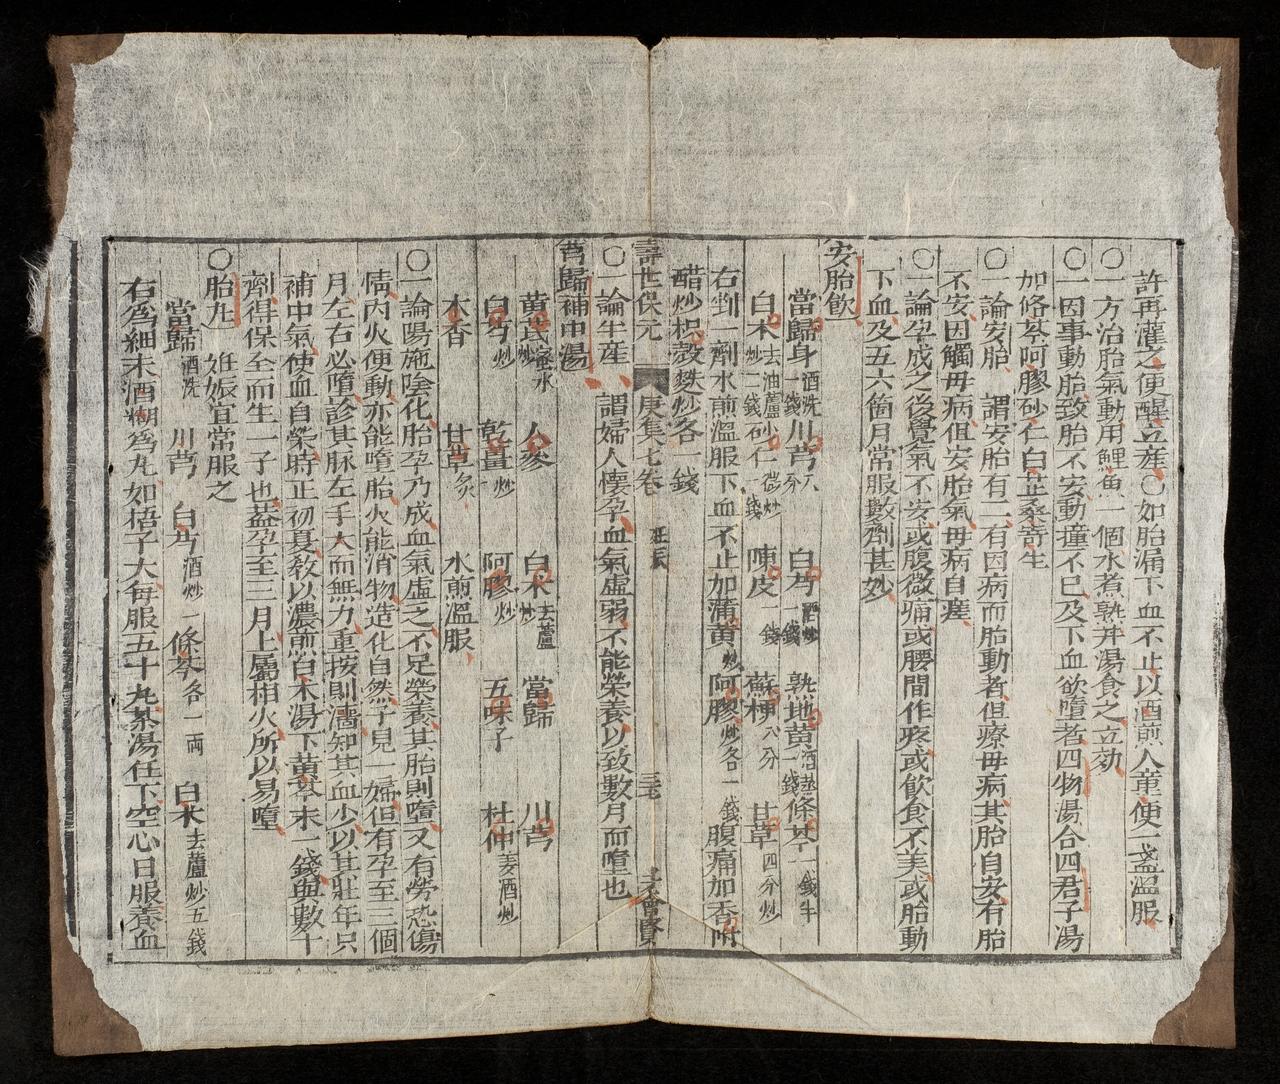 許再灌之便醒立産○如胎漏下血不止以酒煎人童便一盞溫服
○一方治胎氣動用鯉魚一個水煮熟并湯食之立効
○一因事動胎致胎不安動撞不已及下血欲墮者四物湯合四君子湯
加條芩阿膠砂仁白芷桑寄生
○一論安胎 謂安胎有二有因病而胎動者但療母病其胎自安有胎
不安因觸母病但安胎氣母病自瘥
○一論孕成之後覺氣不安或腹微痛或腰間作疼或飲食不美或胎動
下血及五六箇月常服數劑甚妙
安胎飲
當歸身酒洗一錢 川芎八分 白芍酒炒一錢 熟地黄酒蒸一錢 條芩一錢半
白朮去油蘆炒二錢 砂仁微炒錢 陳皮一錢 蘇梗八分 甘草四分炒
右剉一劑水煎溫服下血不止加蒲黄炒阿膠炒各一錢腹痛加香附
醋炒枳殼麩炒各一錢
壽世保元 庚集七卷 妊娠
○一論半産 謂婦人懷孕血氣虛弱不能榮養以致數月而墮也
芎歸補中湯
黄芪蜜水炒 人參 白朮去蘆炒 當歸 川芎
白芍炒 乾薑炒 阿膠炒 五味子 杜仲姜酒炒
木香 甘草炙 水煎溫服
○一論陽施陰化胎孕乃成血氣虛乏不足榮養其胎則墮又有勞恐傷
情内火便動亦能墮胎火能消物造化自然予見一婦但有孕至三個
月左右必墮診其脉左手大而無力重按則濇知其血少以其壯年只
補中氣使血自榮時正初夏教以濃煎白朮湯下黄芩末一錢與數十
劑得保全而生一子也葢孕至三月上屬相火所以易墮
○胎丸 妊娠宜常服之
當歸酒洗 川芎 白芍酒炒 條芩各一兩 白朮去蘆炒五錢
右為細末酒糊為丸如梧子大每服五十丸茶湯任下空心日服養血